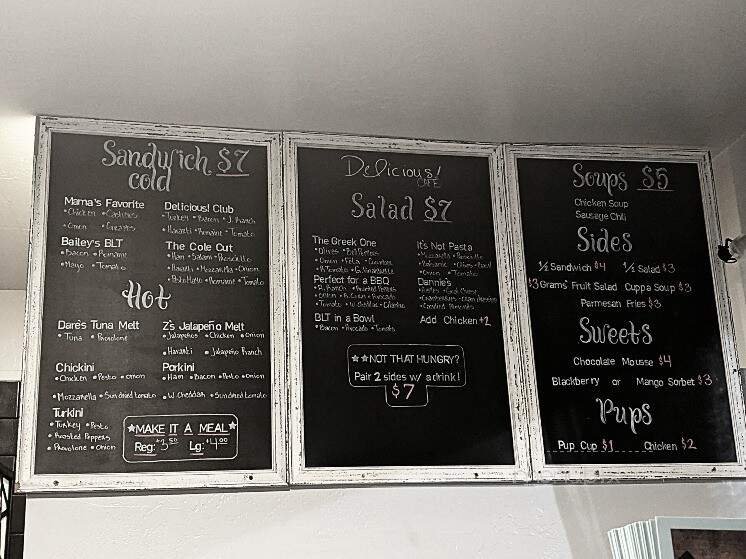 Sandwich $7
cold
Mama's Favorite
• Chicken • Cashews
• Onion • Grapes
Bailey's BLT
• Bacon • Romaine
• Mayo • Tomato
Delicious! Club
• Turkey • Bacon • J. Ranch
• Havarti • Romaine • Tomato
The Cole Cut
• Ham • Salami • Prosciutto
• Havarti • Mozzarella • Onion
• Pesto Mayo • Romaine • Tomato
Hot
Dare's Tuna Melt
• Tuna • Provolone
Z's Jalapeño Melt
• Jalapeños • Chicken • Onion
• Havarti • Jalapeño Ranch
Chickini
• Chicken • Pesto • Onion
• Mozzarella • Sundried tomato
Porkini
• Ham • Bacon • Pesto • Onion
• W. Cheddar • Sundried tomato
Turkini
• Turkey • Pesto
• Roasted Peppers
• Provolone • Onion
★MAKE IT A MEAL★
Reg: +3.50 Lg: +4.00
Delicious!
CAFE
Salad $7
The Greek One
• Olives • Bell Peppers
• Onion • Feta • Cucumber
• R. Tomato • G. Vinaigrette
Perfect for a BBQ
• R. Ranch
• Onion • B. Corn • Avocado
• Tomato • W. Cheddar • Cilantro
BLT in a Bowl
• Bacon • Avocado • Tomato
It's Not Pasta
• Mozzarella • Prosciutto
• Romaine • Olives • Basil
• Onion • Tomato
Dannie's
• Apples • Goat Cheese
• Cranberries
• Candied Almonds
Add Chicken +2
★★NOT THAT HUNGRY?
Pair 2 sides w/ a drink!
$7
Soups $5
Chicken Soup
Sausage Chili
Sides
½ Sandwich $4 ½ Salad $3
$3 Grams' Fruit Salad Cuppa Soup $3
Parmesan Fries $3
Sweets
Chocolate Mousse $4
Blackberry or Mango Sorbet $3
Pups
Pup Cup $1 Chicken $2